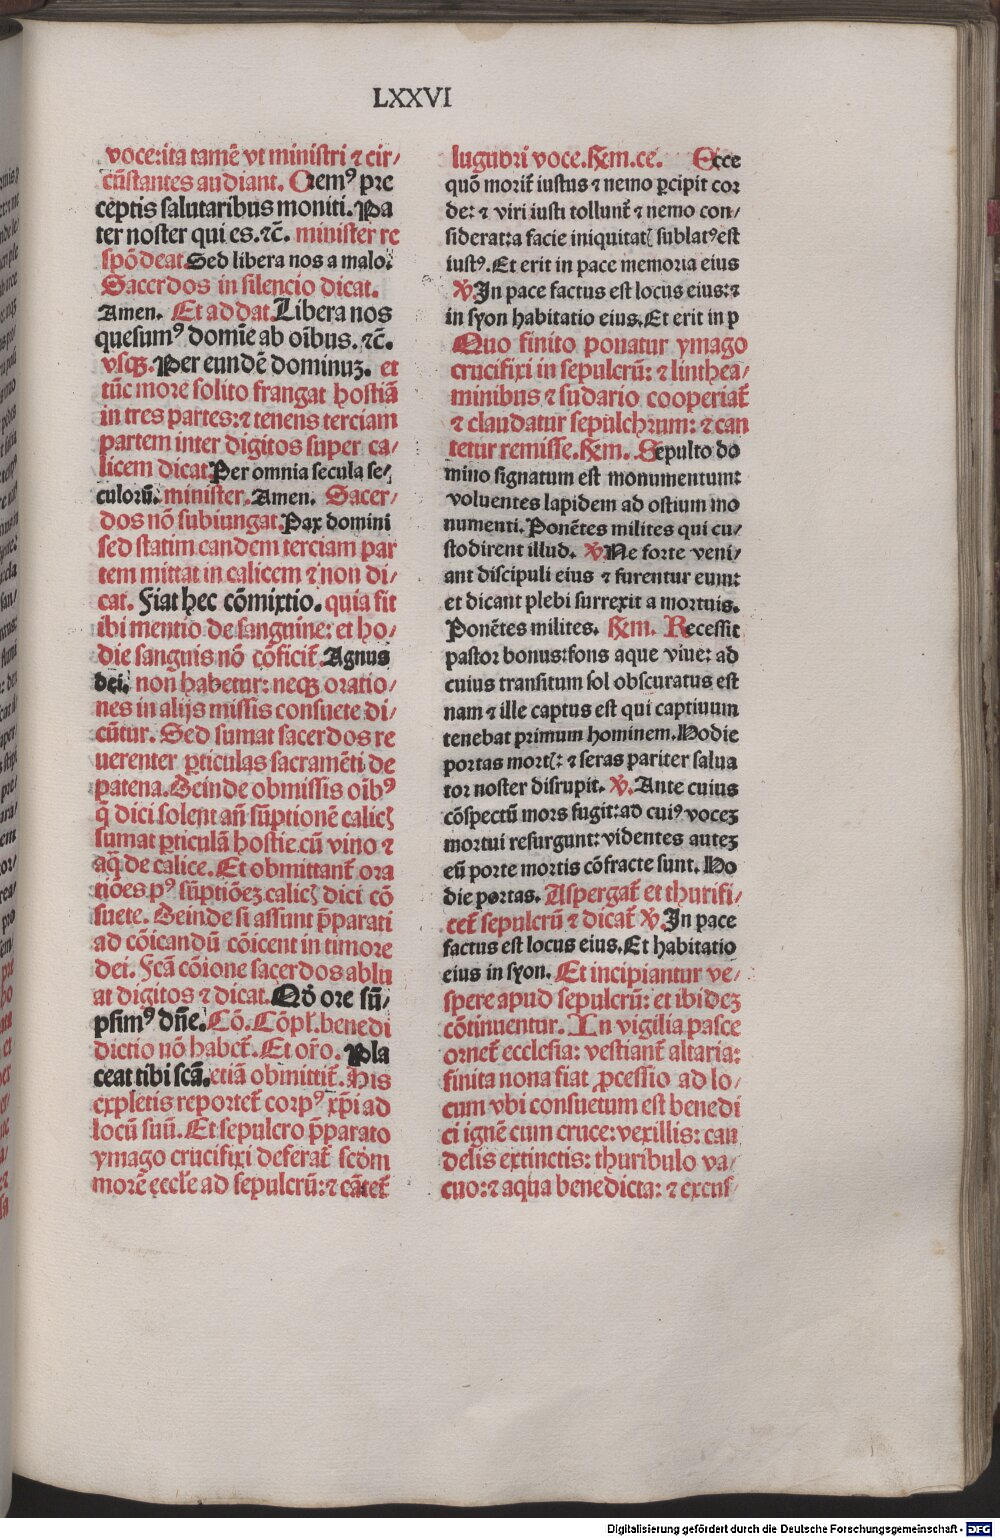 LXXVI
voce: ita tamē vt ministri ⁊ cir/
cūstantes audiant. Oremꝰ pre
ceptis salutaribus moniti. Pa
ter noster qui es. ⁊c̄. minister re
spōdeat Sed libera nos a malo.
Sacerdos in silencio dicat.
Amen. Et addat Libera nos
quesumꝰ domīe ab oībus. ⁊c̄.
vsqꝫ. Per eundē dominuꝫ. et
tūc more solito frangat hostiā
in tres partes: ⁊ tenens terciam
partem inter digitos super ca/
licem dicat Per omnia secula se/
culorū. minister. Amen. Sacer/
dos nō subiungat. Pax domini
sed statim eandem terciam par
tem mittat in calicem ⁊ non di/
cat. Fiat hec cōmixtio. quia fit
ibi mentio de sanguine: et ho/
die sanguis nō cōficit᷑. Agnus
dei. non habetur: neqꝫ oratio/
nes in alijs missis consuete di/
cūtur. Sed sumat sacerdos re
uerenter ꝑticulas sacramēti de
patena. Deinde obmissis oībꝰ
q̄ dici solent an̄ sūptionē calicꝭ
sumat ꝑticulā hostie. cū vino ⁊
aq̄ de calice. Et obmittant᷑ ora
tiōes pꝰ sūptiōeꝫ calicꝭ dici cō
suete. Deinde si assunt p̄parati
ad cōicandū cōicent in timore
dei. Fcā cōione sacerdos ablu
at digitos ⁊ dicat. Qđ ore sū/
psimꝰ dn̄e. Cō. Cōpl̄. benedi
dictio nō habet᷑. Et or̄o. Pla
ceat tibi scā. etiā obmittit᷑. His
expletis reportet᷑ corpꝰ xp̄i ad
locū suū. Et sepulcro p̄parato
ymago crucifixi deferat᷑ scdm
morē eccl̄e ad sepulcrū: ⁊ cātet᷑
lugubri voce. Rem. ce. Ecce
quō morit᷑ iustus ⁊ nemo ꝑcipit cor
de: ⁊ viri iusti tollunt᷑ ⁊ nemo con/
siderat: a facie iniquitatꝭ sublatꝰ est
iustꝰ. Et erit in pace memoria eius
℣ In pace factus est locus eius: ⁊
in syon habitatio eius. Et erit in p
Quo finito ponatur ymago
crucifixi in sepulcrū: ⁊ linthea/
minibus ⁊ sudario cooperiat᷑
⁊ claudatur sepulchrum: ⁊ can
tetur remisse. Rem. Sepulto do
mino signatum est monumentum:
voluentes lapidem ad ostium mo
numenti. Ponētes milites qui cu/
stodirent illud. ℣ Ne forte veni/
ant discipuli eius ⁊ furentur eum:
et dicant plebi surrexit a mortuis.
Ponētes milites. Rem. Recessit
pastor bonus: fons aque viue: ad
cuius transitum sol obscuratus est
nam ⁊ ille captus est qui captiuum
tenebat primum hominem. Hodie
portas mortꝭ: ⁊ seras pariter salua
tor noster disrupit. ℣. Ante cuius
cōspectū mors fugit: ad cuiꝰ voceꝫ
mortui resurgunt: videntes auteꝫ
eū porte mortis cōfracte sunt. Ho
die portas. Aspergat᷑ et thurifi/
cet᷑ sepulcrū ⁊ dicat᷑ ℣. In pace
factus est locus eius. Et habitatio
eius in syon. Et incipiantur ve/
spere apud sepulcrū: et ibideꝫ
cōtinuentur. In vigilia pasce
ornet᷑ ecclesia: vestiant᷑ altaria:
finita nona fiat ꝓcessio ad lo/
cum vbi consuetum est benedi
ci ignē cum cruce: vexillis: can
delis extinctis: thuribulo va/
cuo: ⁊ aqua benedicta: ⁊ excus/
Digitalisierung gefördert durch die Deutsche Forschungsgemeinschaft - DFG